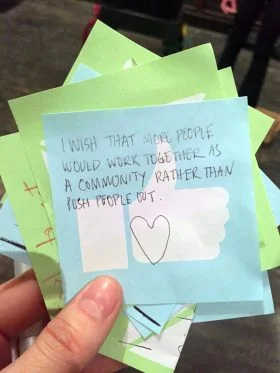 I WISH THAT MORE PEOPLE
WOULD WORK TOGETHER AS
A COMMUNITY RATHER THAN
PUSH PEOPLE OUT.